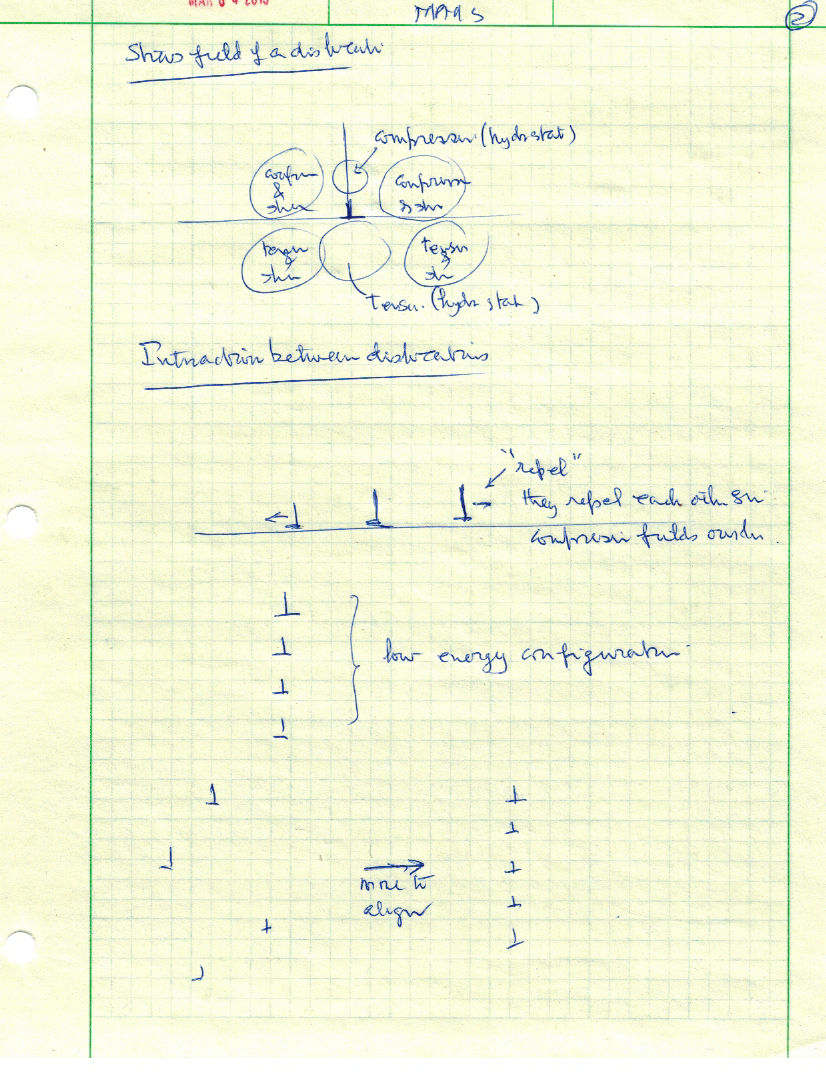 MAR 0 4 2010
MAMS
2
Stress field of a dislocati
compression (hydrostat)
compn & shr
compressn & shr
tensn & shr
tensn & shr
Tensn. (hydrostat)
Interaction between dislocations
"repel"
they repel each other sin
compressn fields overla
low energy configuration
move to
align